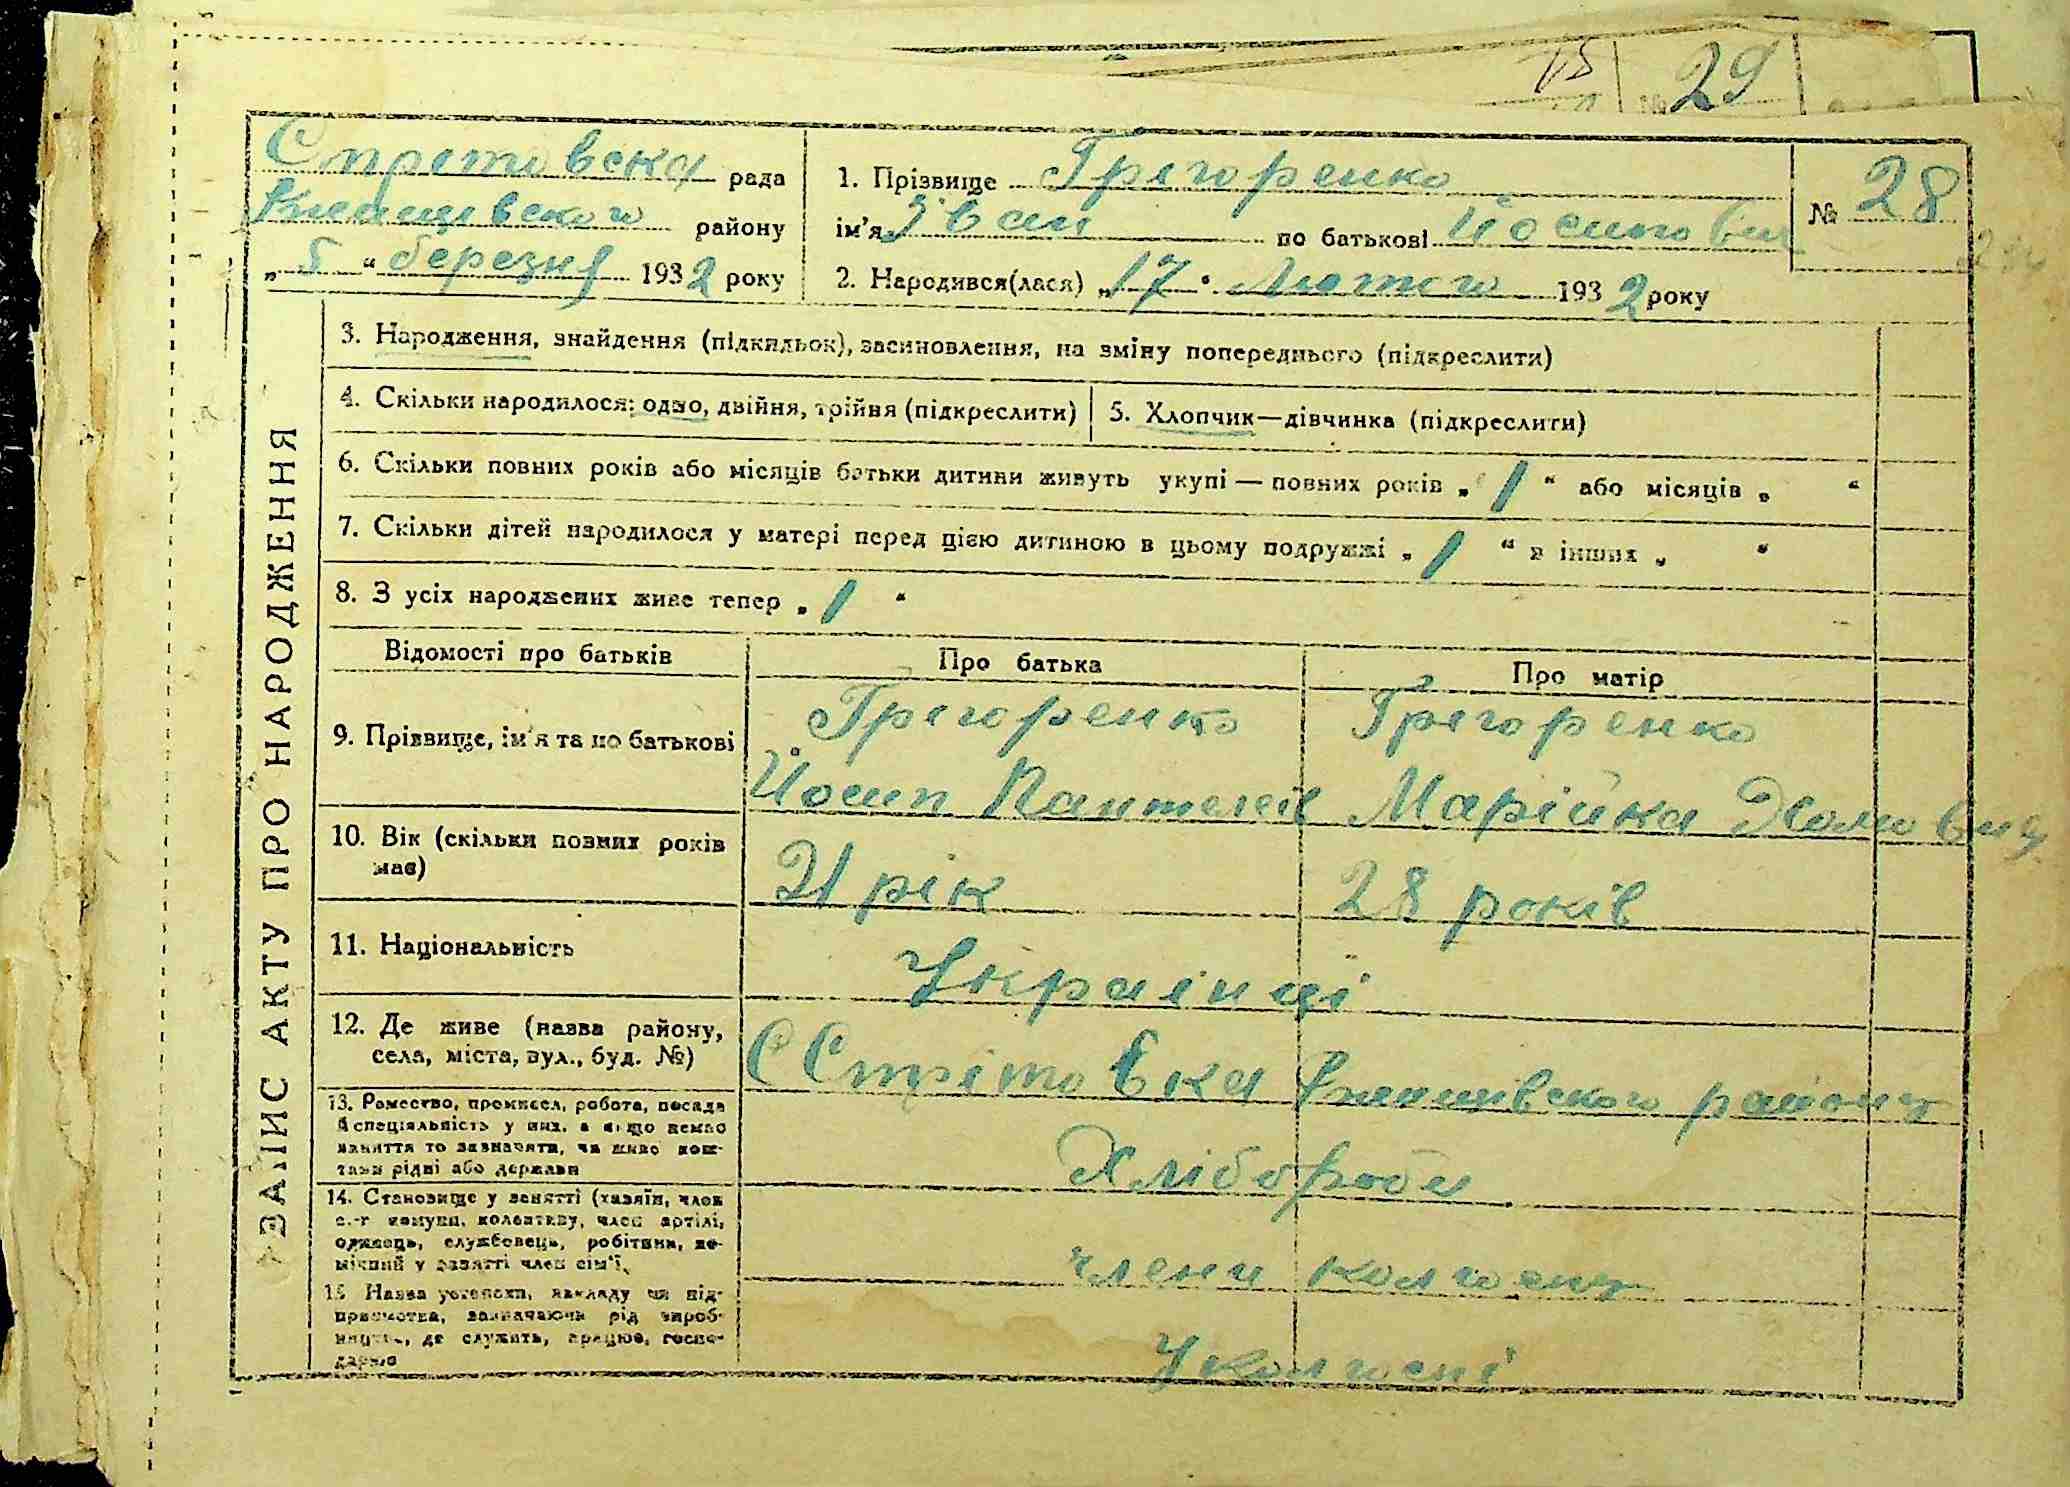 29
Стрітовська рада
району
„ 5 “ березня 1932 року
1. Прізвище Грігоренко
ім'я Іван по батькові Йосипович
№ 28
2. Народився(лася) „ 17 “ Лютого 1932 року
ЗАПИС АКТУ ПРО НАРОДЖЕННЯ
3. Народження, знайдення (підкидьок), засиновлення, на зміну попереднього (підкреслити)
4. Скільки народилося: одно, двійня, трійня (підкреслити)
5. Хлопчик—дівчинка (підкреслити)
6. Скільки повних років або місяців батьки дитини живуть укупі — повних років „ 1 “ або місяців „ “
7. Скільки дітей народилося у матері перед цією дитиною в цьому подружжі „ 1 “ в інших „ “
8. З усіх народжених живе тепер „ 1 “
Відомості про батьків Про батька Про матір
9. Прізвище, ім'я та по батькові
Грігоренко
Йосип Пантелеїв
Грігоренко
Марійка
10. Вік (скільки повних років має)
21 рік
28 років
11. Національність
Українці
12. Де живе (назва району,
села, міста, вул., буд. №)
С Стрітовка району
13. Ремество, промисел, робота, посада
й спеціяльність у них, а якщо немає
заняття то зазначити, чи живе кош-
тами рідні або держави
Хлібороби
14. Становище у занятті (хазяїн, член
с.-г комуни, колективу, член артілі,
одинець, службовець, робітник, по-
мічний у занятті член сім'ї,
члени колгоспу
15 Назва установи, закладу чи під-
приємства, зазначаючи рід вироб-
ництва, де служить, працює, госпо-
дарює
У колгоспі